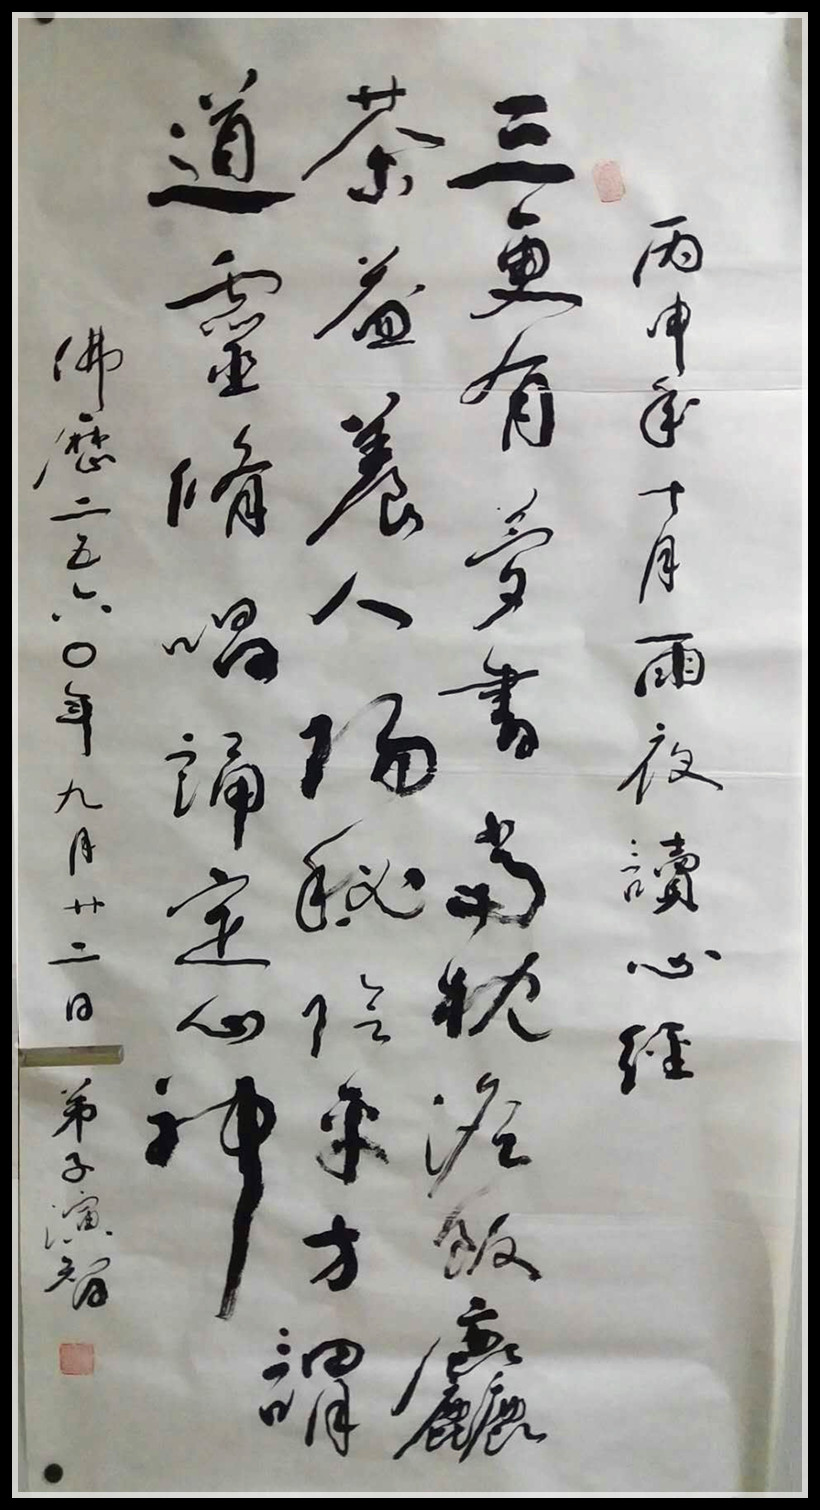 丙申年十月雨夜讀心經
三更有夢書當枕淡飯麤
茶益養人陽秘陰平方謂
道靈脩唱誦定心神
佛歷二五六〇年九月廿二日 弟子演智